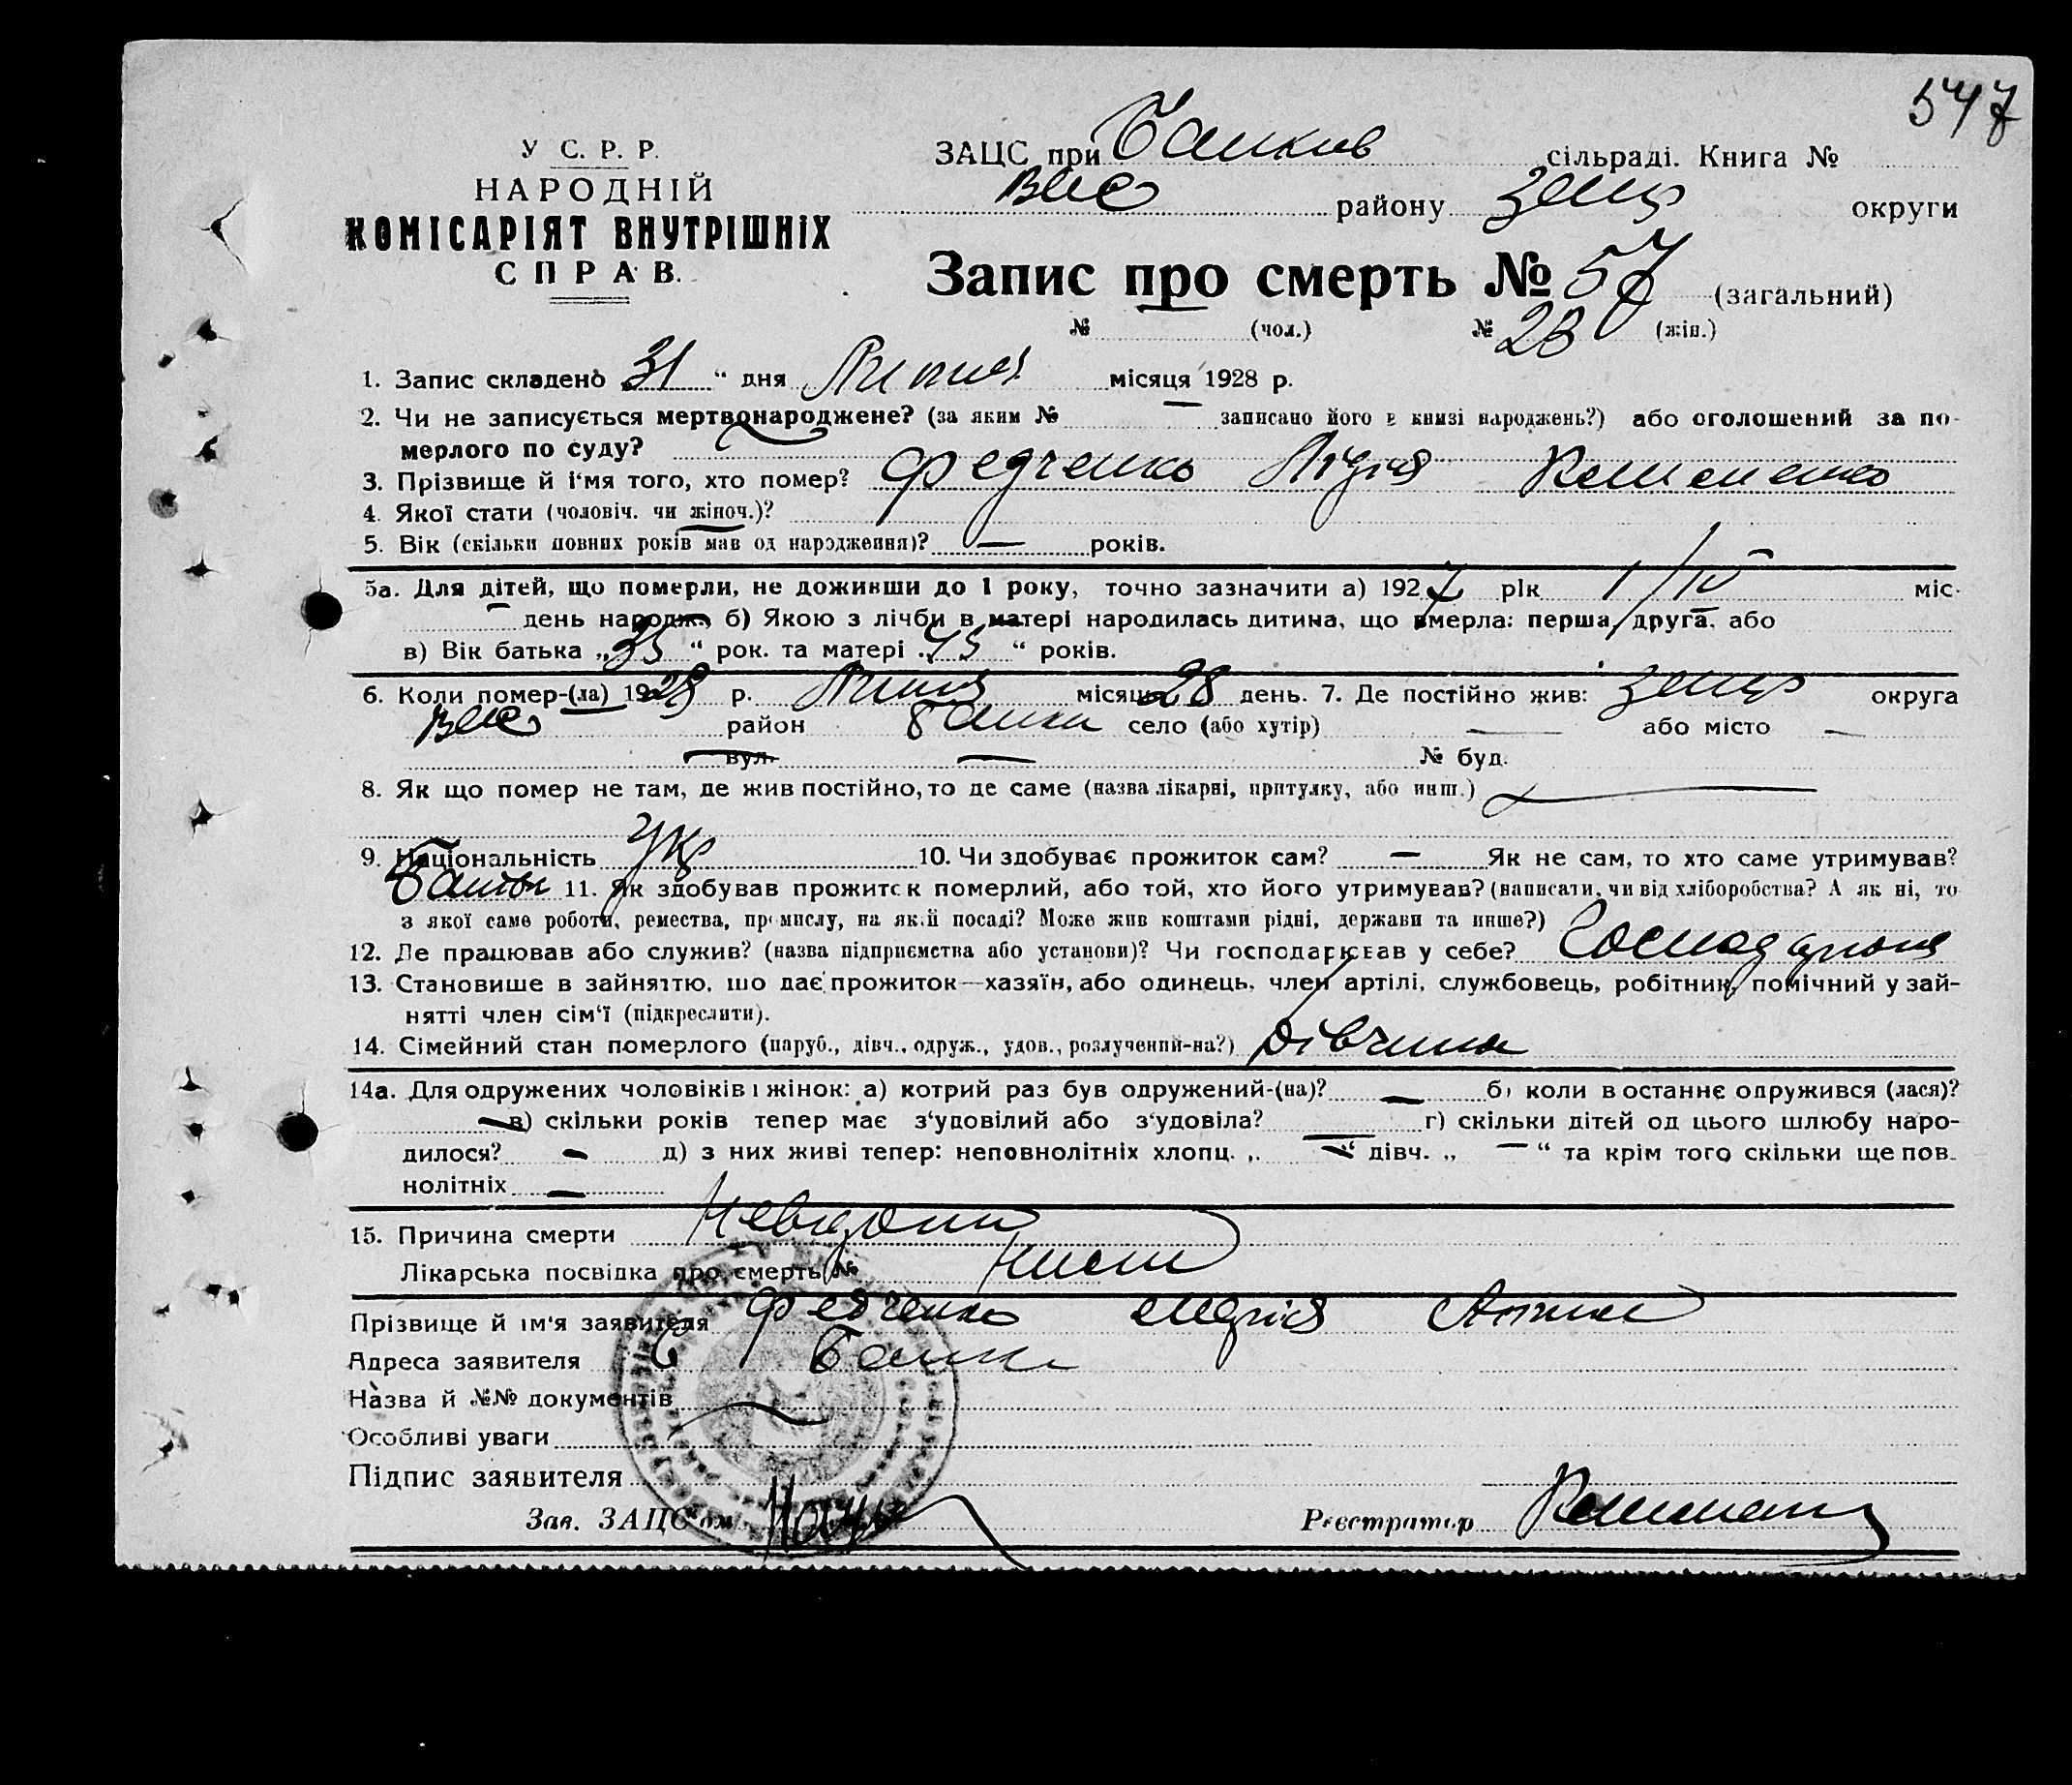 547
У С. Р. Р.
НАРОДНІЙ
КОМІСАРІЯТ ВНУТРІШНІХ
СПРАВ.
ЗАЦС при сільраді. Книга №
району округи
Запис про смерть № 57 (загальний)
№ (чол.) № 28 (жін.)
1. Запис складено „31“ дня Липня місяця 1928 р.
2. Чи не записується мертвонароджене? (за яким № — записано його в книзі народжень?) або оголошений за по-
мерлого по суду?
3. Прізвище й і'мя того, хто помер? Федченко Лідія
4. Якої стати (чоловіч. чи жіноч.)?
5. Вік (скільки повних років мав од народження)? — років.
5а. Для дітей, що померли, не доживши до 1 року, точно зазначити а) 1927 рік 1/IV міс.
день народж. б) Якою з лічби в матері народилась дитина, що вмерла: перша, друга, або
в) Вік батька „35“ рок. та матері „ “ років.
6. Коли помер-(ла) 1928 р. Липня місяця 28 день. 7. Де постійно жив: округа
район село (або хутір) — або місто —
вул. — № буд.
8. Як що помер не там, де жив постійно, то де саме (назва лікарні, притулку, або инш.) —
9. Національність Укр 10. Чи здобуває прожиток сам? — Як не сам, то хто саме утримував?
Батьки 11. Як здобував прожиток померлий, або той, хто його утримував? (написати, чи від хліборобства? А як ні, то
з якої саме роботи, ремества, промислу, на якій посаді? Може жив коштами рідні, держави та инше?)
12. Де працював або служив? (назва підприємства або установи)? Чи господарював у себе?
13. Становище в зайняттю, що дає прожиток—хазяїн, або одинець, член артілі, службовець, робітник, помічний у зай-
нятті член сім'ї (підкреслити).
14. Сімейний стан померлого (паруб., дівч., одруж., удов., розлучений-на?) Дівчина
14а. Для одружених чоловіків і жінок: а) котрий раз був одружений-(на)? — б) коли востаннє одружився (лася)?
— в) скільки років тепер має з'удовілий або з'удовіла? — г) скільки дітей од цього шлюбу наро-
дилося? — д) з них живі тепер: неповнолітніх хлопц. „—“ дівч. „—“ та крім того скільки ще пов-
нолітніх —
15. Причина смерти
Лікарська посвідка про смерть №
Прізвище й ім'я заявителя Федченко
Адреса заявителя
Назва й №№ документів
Особливі уваги
Підпис заявителя
Зав. ЗАЦС'ом Реєстратор